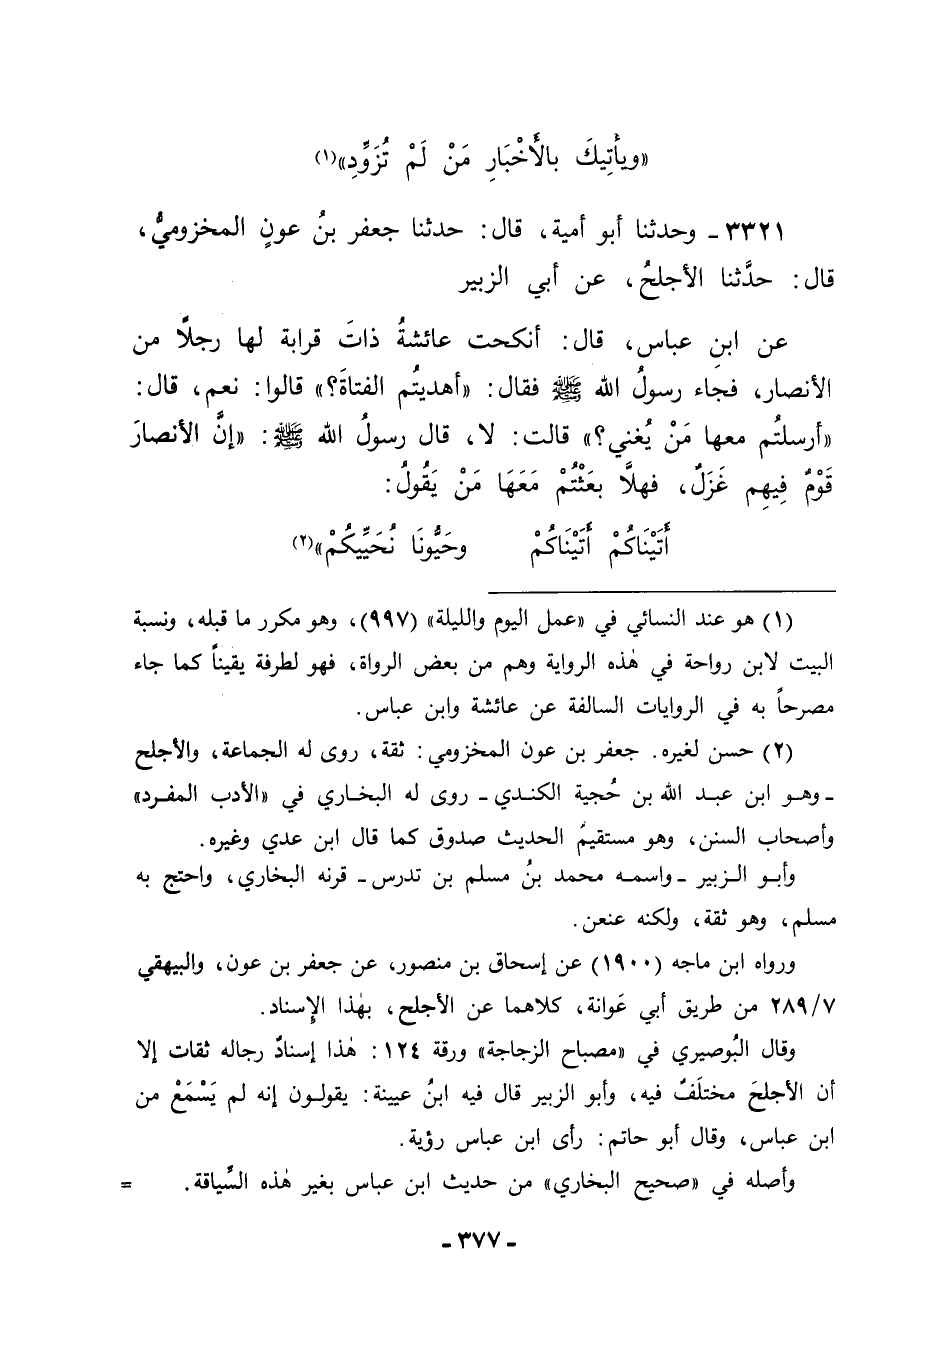 «ويأتِيكَ بالأَخْبَارِ مَنْ لَمْ تُزَوِّدِ»(١)
٣٣٢١ ـ وحدثنا أبو أمية، قال: حدثنا جعفر بنُ عونٍ المخزوميُّ،
قال: حدَّثنا الأجلحُ، عن أبي الزبير
عن ابنِ عباس، قال: أنكحت عائشةُ ذاتَ قرابة لها رجلاً من
الأنصار، فجاء رسولُ الله ﷺ فقال: «أهديتُم الفتاةَ؟» قالوا: نعم، قال:
«أرسلتُم معها مَنْ يُغني؟» قالت: لا، قال رسولُ الله ﷺ: «إنَّ الأنصارَ
قَوْمٌ فِيهِم غَزَلٌ، فهلاَّ بعَثْتُمْ مَعَهَا مَنْ يَقُولُ:
أَتَيْنَاكُمْ أَتَيْنَاكُمْ وحَيُّونَا نُحَيِّيكُمْ»(٢)
(١) هو عند النسائي في «عمل اليوم والليلة» (٩٩٧)، وهو مكرر ما قبله، ونسبة
البيت لابن رواحة في هٰذه الرواية وهم من بعض الرواة، فهو لطرفة يقيناً كما جاء
مصرحاً به في الروايات السالفة عن عائشة وابن عباس.
(٢) حسن لغيره. جعفر بن عون المخزومي: ثقة، روى له الجماعة، والأجلح
ـ وهو ابن عبد الله بن حُجية الكندي ـ روى له البخاري في «الأدب المفرد»
وأصحاب السنن، وهو مستقيمُ الحديث صدوق كما قال ابن عدي وغيره.
وأبو الزبير ـ واسمه محمد بنُ مسلم بن تدرس ـ قرنه البخاري، واحتج به
مسلم، وهو ثقة، ولكنه عنعن.
ورواه ابن ماجه (١٩٠٠) عن إسحاق بن منصور، عن جعفر بن عون، والبيهقي
٢٨٩/٧ من طريق أبي عَوانة، كلاهما عن الأجلح، بهٰذا الإِسناد.
وقال البُوصيري في «مصباح الزجاجة» ورقة ١٢٤: هٰذا إسنادٌ رجاله ثقات إلا
أن الأجلحَ مختلَفٌ فيه، وأبو الزبير قال فيه ابنُ عيينة: يقولون إنه لم يَسْمَعْ من
ابن عباس، وقال أبو حاتم: رأى ابن عباس رؤية.
وأصله في «صحيح البخاري» من حديث ابن عباس بغير هٰذه السِّياقة. =
ـ ٣٧٧ ـ